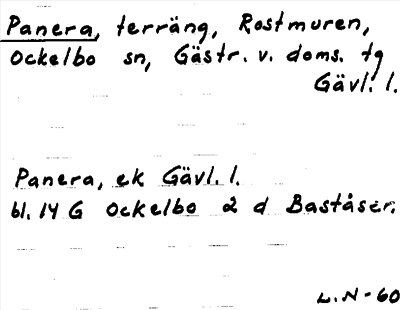 Panera, terräng, Rostmuren,
Ockelbo sn, Gästr. v. doms. tg
Gävl. l.
Panera, ek Gävl. l.
bl. 14 G Ockelbo 2 d Baståser.
L.N-60